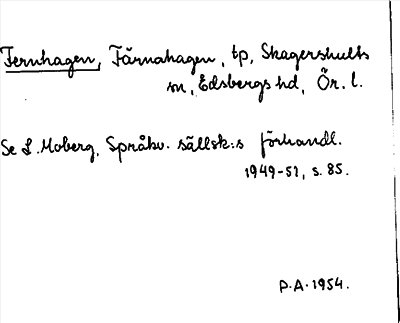 Fernhagen, Färnahagen, tp, Skagershults
sn, Edsbergs hd, Ör. l.
Se L. Moberg, Språkv. sällsk:s förhandl.
1949-51, s. 85.
P.A. 1954.